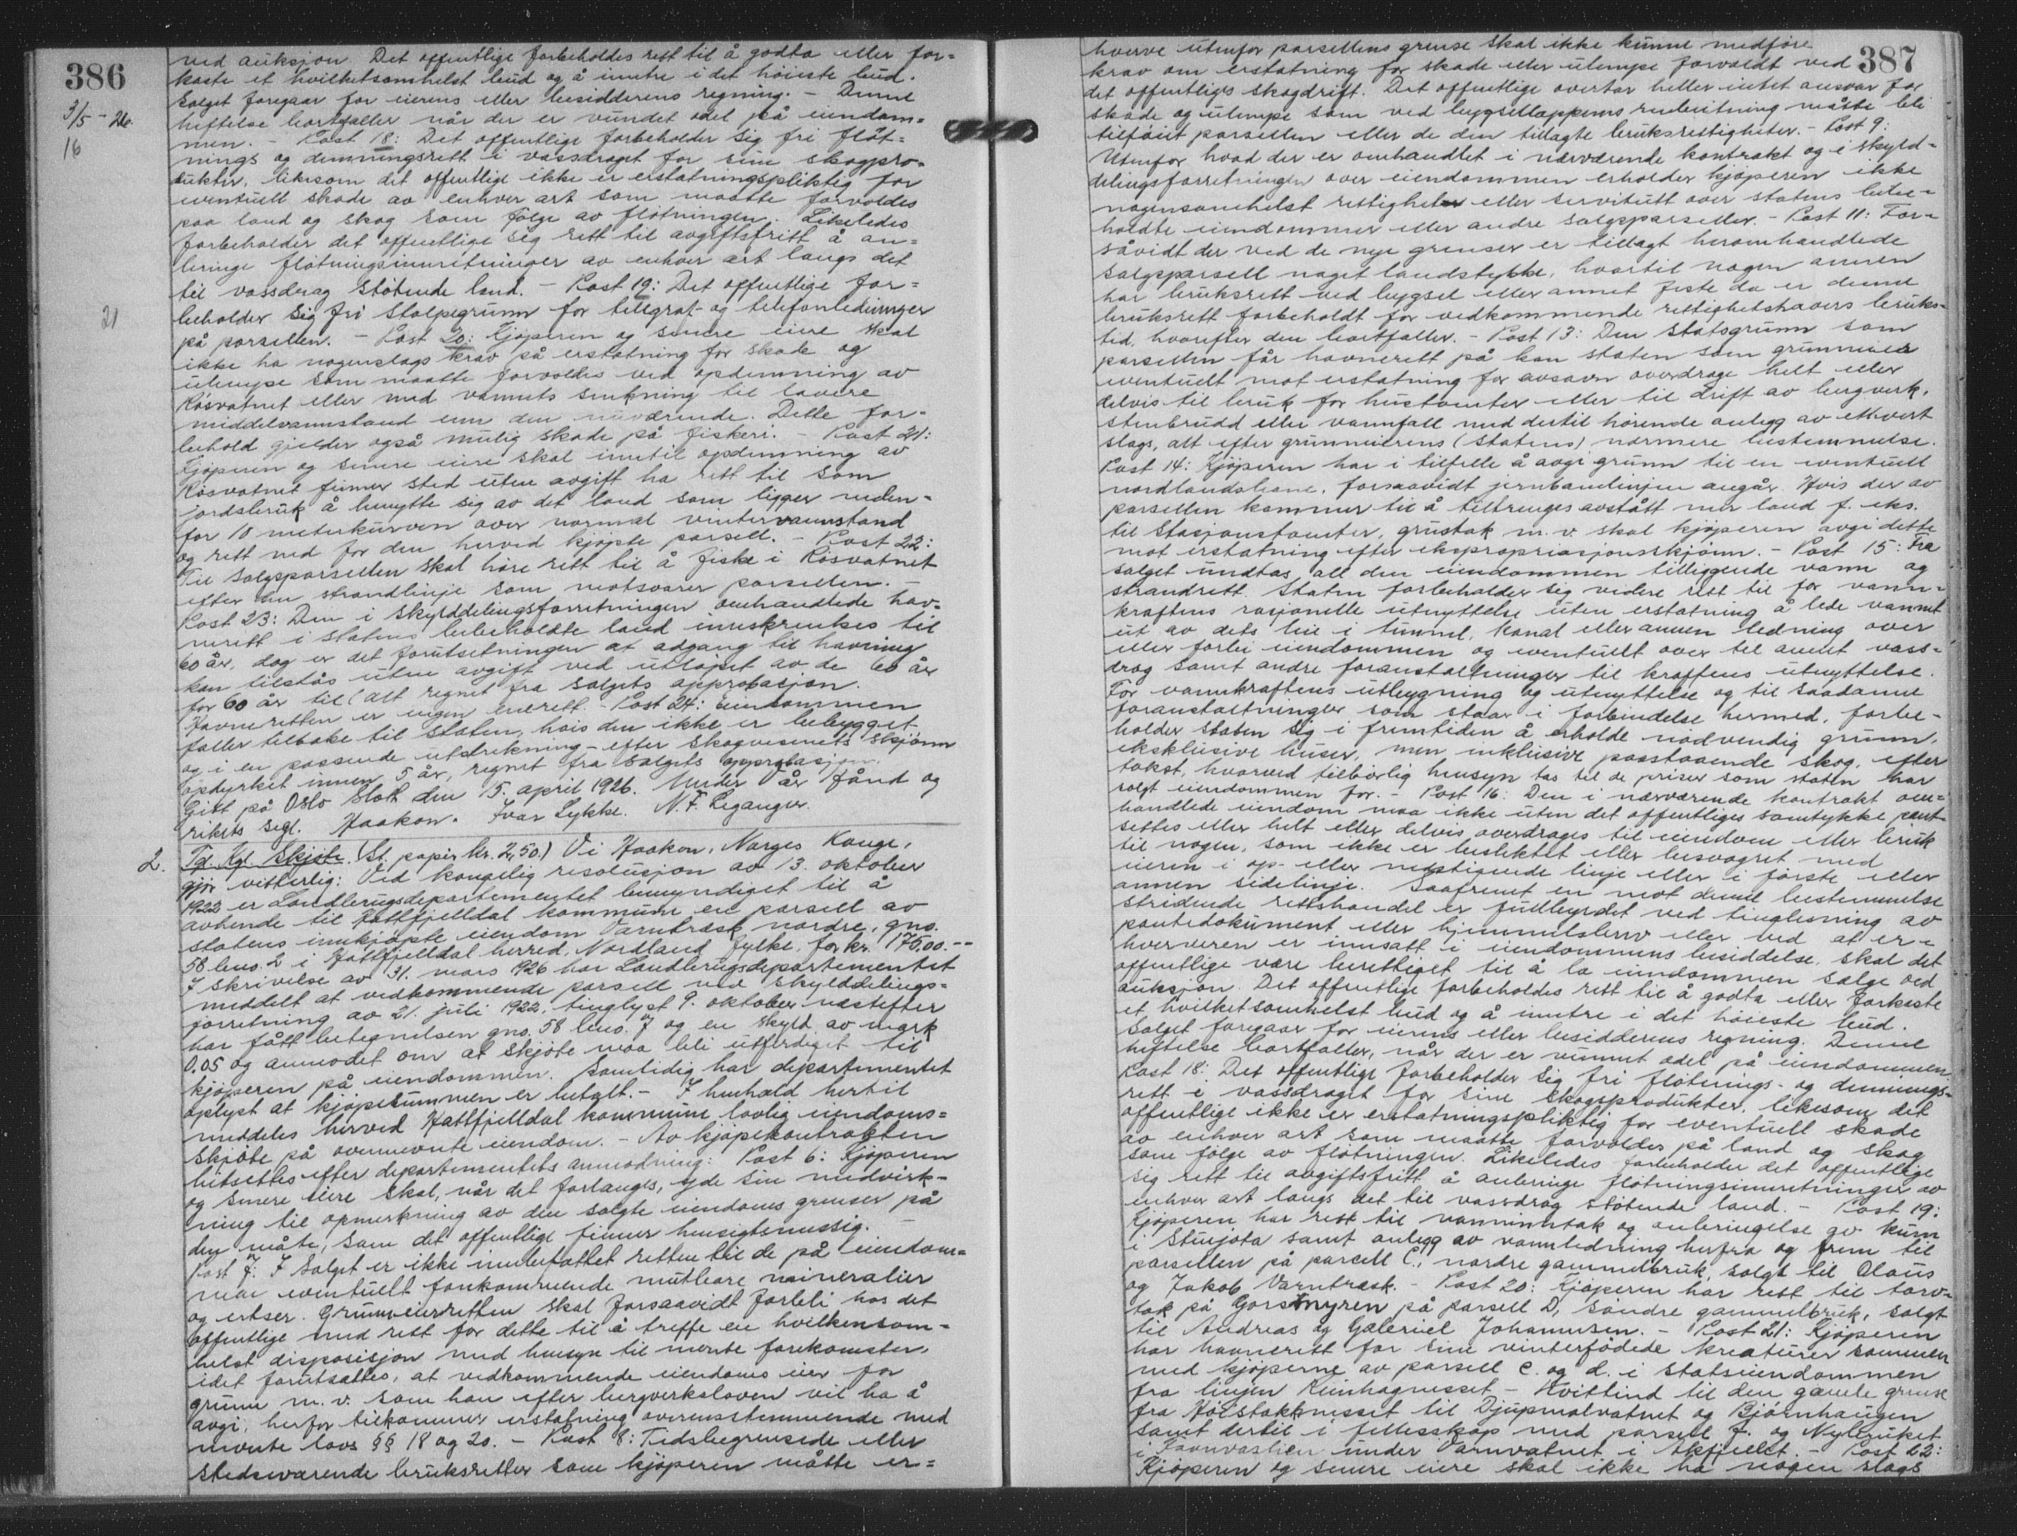 386
3/5-26
16
ved auksjon. Det offentlige forbeholdes rett til å godta eller for=
kaste et hvilketsomhelst bud og å inntre i det høieste bud.
Salget foregaar for eierens eller besidderens regning. - Denne
heftelse bortfaller når der er vundet odel på eiendom=
men. - Post 18: Det offentlige forbeholder sig fri fløt=
nings og demningsrett i vassdraget for sine skogpro=
dukter, likesom det offentlige ikke er erstatningspliktig for
eventuell skade av enhver art som maatte forvoldes
paa land og skog som følge av fløtningen. Likeledes
forbeholder det offentlige sig rett til avgiftsfritt å an=
bringe fløtningsinnretninger av enhver art langs det
til vassdrag støtende land. - Post 19: Det offentlige for=
beholder sig fri stolpegrunn for telegraf- og telefonledninger
21
på parsellen. - Post 20: Kjøperen og senere eiere skal
ikke ha nogenslags krav på erstatning for skade og
ulempe som maatte forvoldes ved opdemning av
Røsvatnet eller med vannets senkning til lavere
middelvannstand enn den nuværende. Dette for=
behold gjelder også mulig skade på fiskeri. - Post 21:
Kjøperen og senere eiere skal inntil opdemning av
Røsvatnet finner sted uten avgift ha rett til som
jordsbruk å benytte sig av det land som ligger neden=
for 10 meterkurven over normal vintervannstand
og rett ned for den herved kjøpte parsell. - Post 22:
Til salgsparsellen skal høre rett til å fiske i Røsvatnet
efter den strandlinje som motsvarer parsellen. -
Post 23: Den i skylddelingsforretningen omhandlede hav=
nerett i statens beholdte land innskrenkes til
60 år, dog er det forutsetningen at adgang til havning
kan tilståes uten avgift ved utløpet av de 60 år
for 60 år til (alt regnet fra salgets approbasjon.
Havneretten er ingen enerett. - Post 24: Eiendommen
faller tilbake til staten, hvis den ikke er bebygget
og i en passende utstrekning - efter skogvesenets skjønn
opdyrket innen 5 år, regnet fra salgets approbasjon.
Gitt på Oslo Slott den 15. april 1926. Under Vår Hånd og
rikets segl. Haakon. Ivar Lykke. N. F. Leganger.
2. Tgl. Kgl. Skjøte. (St. papir kr. 2,50.) Vi Haakon, Norges Konge,
gjør vitterlig: Ved kongelig resolusjon av 13. oktober
1922 er Landbruksdepartementet bemyndiget til å
avhende til Hattfjelldal kommune en parsell av
statens innkjøpte eiendom Varntræsk, nordre, gno.
58 bno. 2 i Hattfjelldal herred, Nordland fylke, for kr. 175,00. --
I skrivelse av 31. mars 1926 har Landbruksdepartementet
meddelt at vedkommende parsell ved skylddelings=
forretning av 21. juli 1922, tinglyst 9. oktober næstefter
har fått betegnelsen gno. 58 bno. 7 og en skyld av mark
0,05 og anmodet om at skjøte maa bli utferdiget til
kjøperen på eiendommen. Samtidig har departementet
oplyst at kjøpesummen er betalt. - I henhold hertil
meddeles herved Hattfjelldal kommune lovlig eiendoms=
skjøte på ovennevnte eiendom. - Av kjøpekontrakten
hitsettes efter departementets anmodning: Post 6: Kjøperen
og senere eiere skal, når det forlanges, yde sin medvirk=
ning til opmerkning av den solgte eiendoms grenser på
den måte, som det offentlige finner hensigtsmessig. -
Post 7: I salget er ikke innbefattet retten til de på eiendom=
men eventuelt forekommende mutbare mineralier
og ertser. Grunneierretten skal forsaavidt forbli hos det
offentlige med rett for dette til å treffe en hvilkensom=
helst disposisjon med hensyn til mente forekomster,
idet forutsettes, at vedkommende eiendoms eier for
grunn m. v. som han efter bergverksloven vil ha å
avgi, herfor tilkommer erstatning overensstemmende med
nevnte lovs §§ 18 og 20. - Post 8: Tidsbegrensede eller
stedsvarende bruksretter som kjøperen måtte er=
387
hverve utenfor parsellens grense skal ikke kunne medføre
krav om erstatning for skade eller ulempe forvoldt ved
det offentliges skogdrift. Det offentlige overtar heller intet ansvar for
skade og ulempe som ved bygsellappens renbeitning måtte bli
tilføiet parsellen eller de den tillagte bruksrettigheter. - Post 9:
Utenfor hvad der er omhandlet i nærværende kontrakt og i skyld=
delingsforretningen over eiendommen erholder kjøperen ikke
nogensomhelst rettigheter eller servitutt over statens bibe=
holdte eiendommer eller andre salgsparseller. - Post 11: For=
såvidt der ved de nye grenser er tillagt heromhandlede
salgsparsell noget landstykke, hvortil nogen annen
har bruksrett ved bygsel eller annet feste da er denne
bruksrett forbeholdt for vedkommende rettighetshavers bruks=
tid, hvorefter den bortfaller. - Post 13: Den statsgrunn som
parsellen får havnerett på kan staten som grunneier
eventuelt mot erstatning for avsavn overdrage helt eller
delvis til bruk for hustomter eller til drift av bergverk,
stenbrudd eller vannfall med dertil hørende anlegg av ethvert
slags, alt efter grunneierens (statens) nærmere bestemmelse.
Post 14: Kjøperen har i tilfelle å avgi grunn til en eventuell
nordlandsbane, forsaavidt jernbanelinjen angår. Hvis der av
parsellen kommer til å tiltrenges avstått mer land f. eks.
til stasjonstomter, grustak m. v. skal kjøperen avgi dette
mot erstatning efter ekspropriasjonsskjønn. - Post 15: Fra
salget undtas all den eiendommen tilliggende vann og
strandrett. Staten forbeholder sig videre rett til for vann=
kraftens rasjonelle utnyttelse uten erstatning å lede vannet
ut av dets leie i tunnel, kanal eller annen ledning over
eller forbi eiendommen og eventuelt over til annet vass=
drag samt andre foranstaltninger til kraftens utnyttelse.
For vannkraftens utbygning og utnyttelse og til saadanne
foranstaltninger som staar i forbindelse hermed, forbe=
holder staten sig i fremtiden å erholde nødvendig grunn,
eksklusive huser, men inklusive påstaaende skog, efter
takst, hvorved tilbørlig hensyn tas til de priser som staten har
solgt eiendommen for. - Post 16: Den i nærværende kontrakt om=
handlede eiendom maa ikke uten det offentliges samtykke pant=
settes eller helt eller delvis overdrages til eiendom eller bruk
til nogen, som ikke er beslektet eller besvogret med
eieren i op- eller nedstigende linje eller i første eller
annen sidelinje. Saafremt en mot denne bestemmelse
stridende rettshandel er fullbyrdet ved tinglesning av
pantedokument eller hjemmelsbrev eller ved at er=
hververen er innsatt i eiendommens besiddelse, skal det
offentlige være berettiget til å la eiendommen selge ved
auksjon. Det offentlige forbeholdes rett til å godta eller forkaste
et hvilketsomhelst bud og å inntre i det høieste bud.
Salget foregaar for eierens eller besidderens regning. Denne
heftelse bortfaller, når der er vunnet odel på eiendommen
Post 18: Det offentlige forbeholder sig fri fløtnings- og demnings=
rett i vassdraget for sine skogsprodukter, likesom det
offentlige ikke er erstatningspliktig for eventuell skade
av enhver art som maatte forvoldes på land og skog
som følge av fløtningen. Likeledes forbeholder det offentlige
sig rett til avgiftsfritt å anbringe fløtningsinnretninger av
enhver art langs det til vassdrag støtende land. - Post 19:
Kjøperen har rett til vanninntak og anbringelse av kum
i Stenjota samt anlegg av vannledning herfra og frem til
parsellen på parsell C, nordre gammelbruk, solgt til Olaus
og Jakob Varntræsk. - Post 20: Kjøperen har rett til torv=
tak på Gorsmyren på parsell D, søndre gammelbruk, solgt
til Andreas og Gabriel Johannesen. - Post 21: Kjøperen
har havnerett for sine vinterfødede kreaturer sammen
med kjøperne av parsell C. og d. i statseiendommen
fra linjen Reinhagneset - Hvitlind til den gamle grense
fra Kølstokkneset til Djupmolvatnet og Bjørnhaugen
samt dertil i fellesskap med parsell F. og Nybruket
i Favnvasslien under Varnvatnet i Akfjellet. - Post 22:
Kjøperen og senere eiere skal ikke ha nogen slags